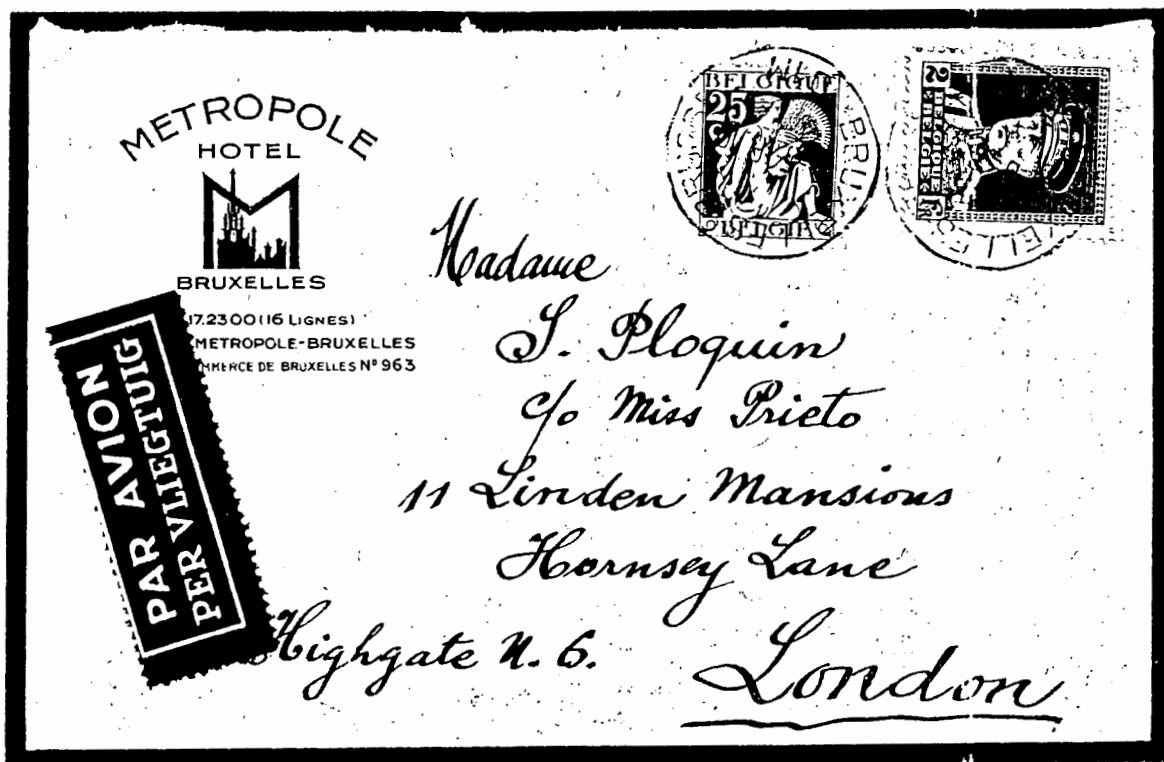 METROPOLE
HOTEL
BRUXELLES
17.23 00 (16 LIGNES)
METROPOLE-BRUXELLES
DE BRUXELLES Nº 963
PAR AVION
PER VLIEGTUIG
BELGIQUE
25
c
BELGIE
2
BELGIQUE
BELGIE
Madame
S. Ploquin
c/o Miss Prieto
11 Linden Mansions
Hornsey Lane
Highgate N. 6.
London